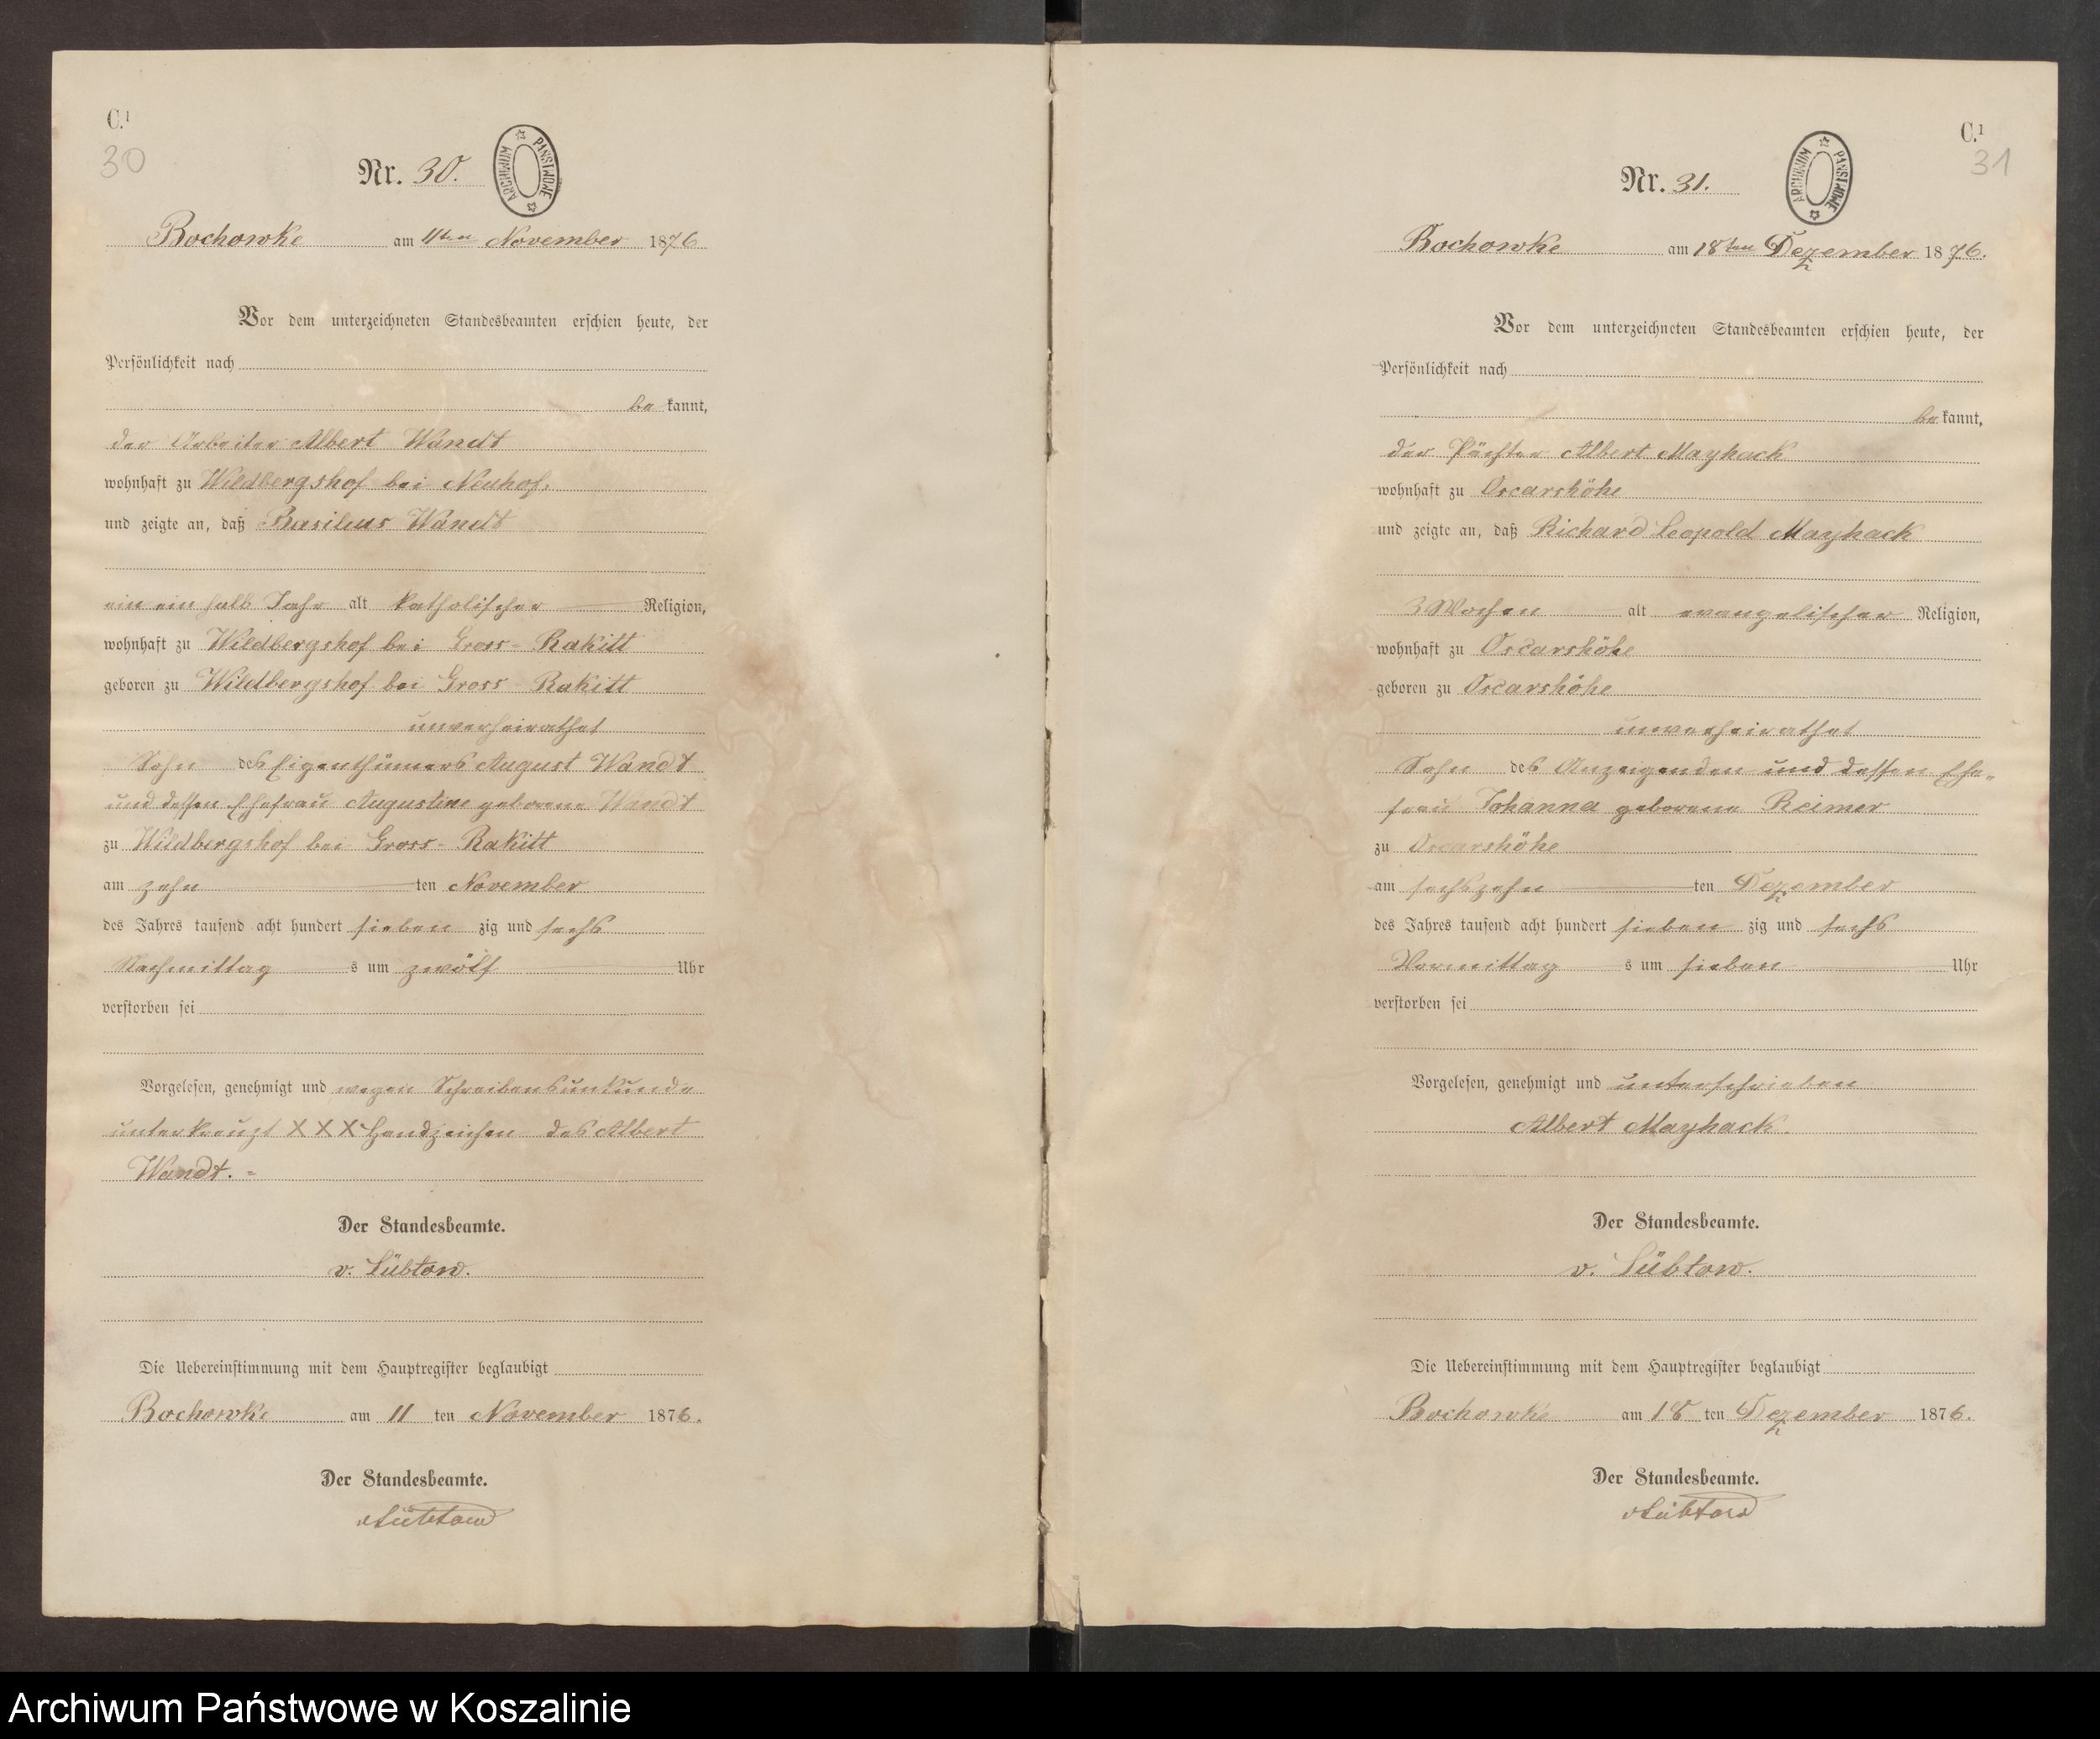 C.¹
30
Nr. 30.
ARCHIWUM PAŃSTWOWE
Bochowke am 11ten November 1876
Vor dem unterzeichneten Standesbeamten erschien heute, der
Persönlichkeit nach
be kannt,
der Arbeiter Albert Wandt
wohnhaft zu Wildbergshof bei Neuhof,
und zeigte an, daß Basilius Wandt
ein ein halb Jahr alt katholischer Religion,
wohnhaft zu Wildbergshof bei Gross-Rakitt
geboren zu Wildbergshof bei Gross-Rakitt
unverheirathet
Sohn des Eigenthümers August Wandt
und dessen Ehefrau Augustine geborene Wandt
zu Wildbergshof bei Gross-Rakitt
am zehn ten November
des Jahres tausend acht hundert sieben zig und sechs
Nachmittag s um zwölf Uhr
verstorben sei
Vorgelesen, genehmigt und wegen Schreibensunkunde
unterkreuzt XXX Handzeichen des Albert
Wandt.=
Der Standesbeamte.
v. Lübtow.
Die Uebereinstimmung mit dem Hauptregister beglaubigt
Bochowke am 11 ten November 1876.
Der Standesbeamte.
vLübtow
C.¹
31
Nr. 31.
ARCHIWUM PAŃSTWOWE
Bochowke am 18ten Dezember 1876.
Vor dem unterzeichneten Standesbeamten erschien heute, der
Persönlichkeit nach
be kannt,
der Pächter Albert Mayhack
wohnhaft zu Oscarshöhe
und zeigte an, daß Richard Leopold Mayhack
3 Wochen alt evangelischer Religion,
wohnhaft zu Oscarshöhe
geboren zu Oscarshöhe
unverheirathet
Sohn des Anzeigenden und dessen Ehe=
frau Johanna geborene Reimer
zu Oscarshöhe
am sechszehn ten Dezember
des Jahres tausend acht hundert sieben zig und sechs
Vormittag s um sieben Uhr
verstorben sei
Vorgelesen, genehmigt und unterschrieben
Albert Mayhack.
Der Standesbeamte.
v. Lübtow.
Die Uebereinstimmung mit dem Hauptregister beglaubigt
Bochowke am 18 ten Dezember 1876.
Der Standesbeamte.
vLübtow
Archiwum Państwowe w Koszalinie